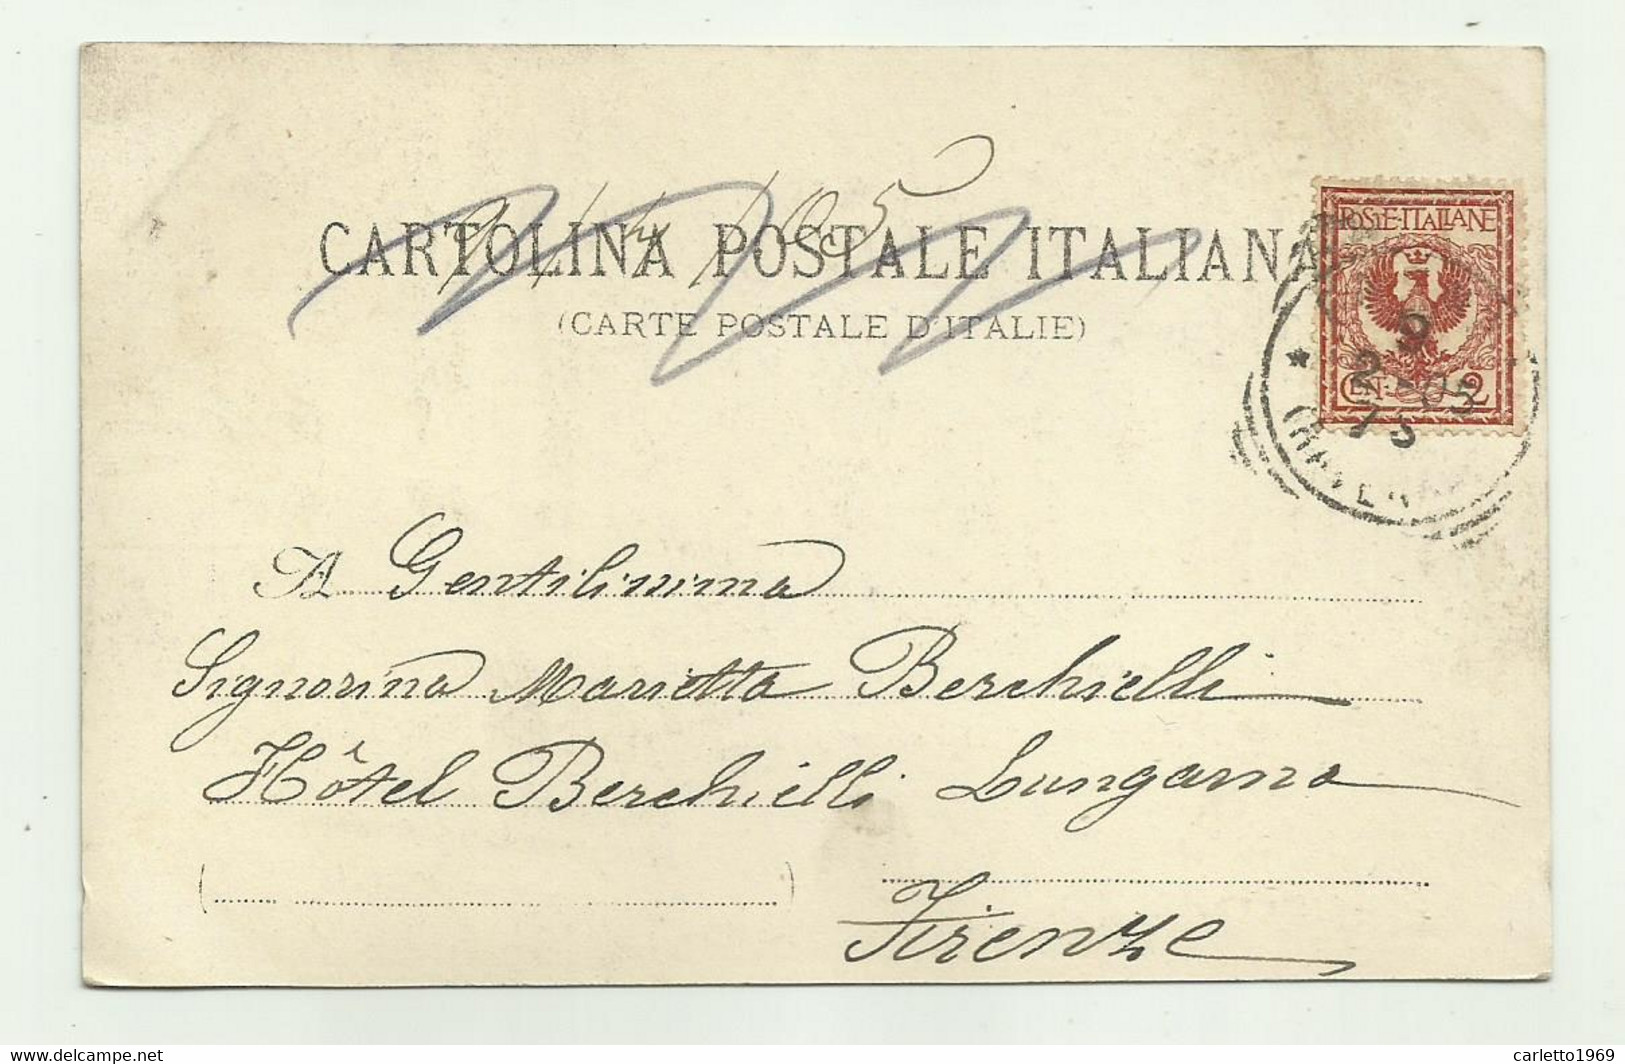 CARTOLINA POSTALE ITALIANA
(CARTE POSTALE D'ITALIE)
POSTE·ITALIANE
CEN. 2
9
2-05
A Gentilissima
Signorina Marietta Berchielli
Hôtel Berchielli Lungarno
Firenze
carletto1969